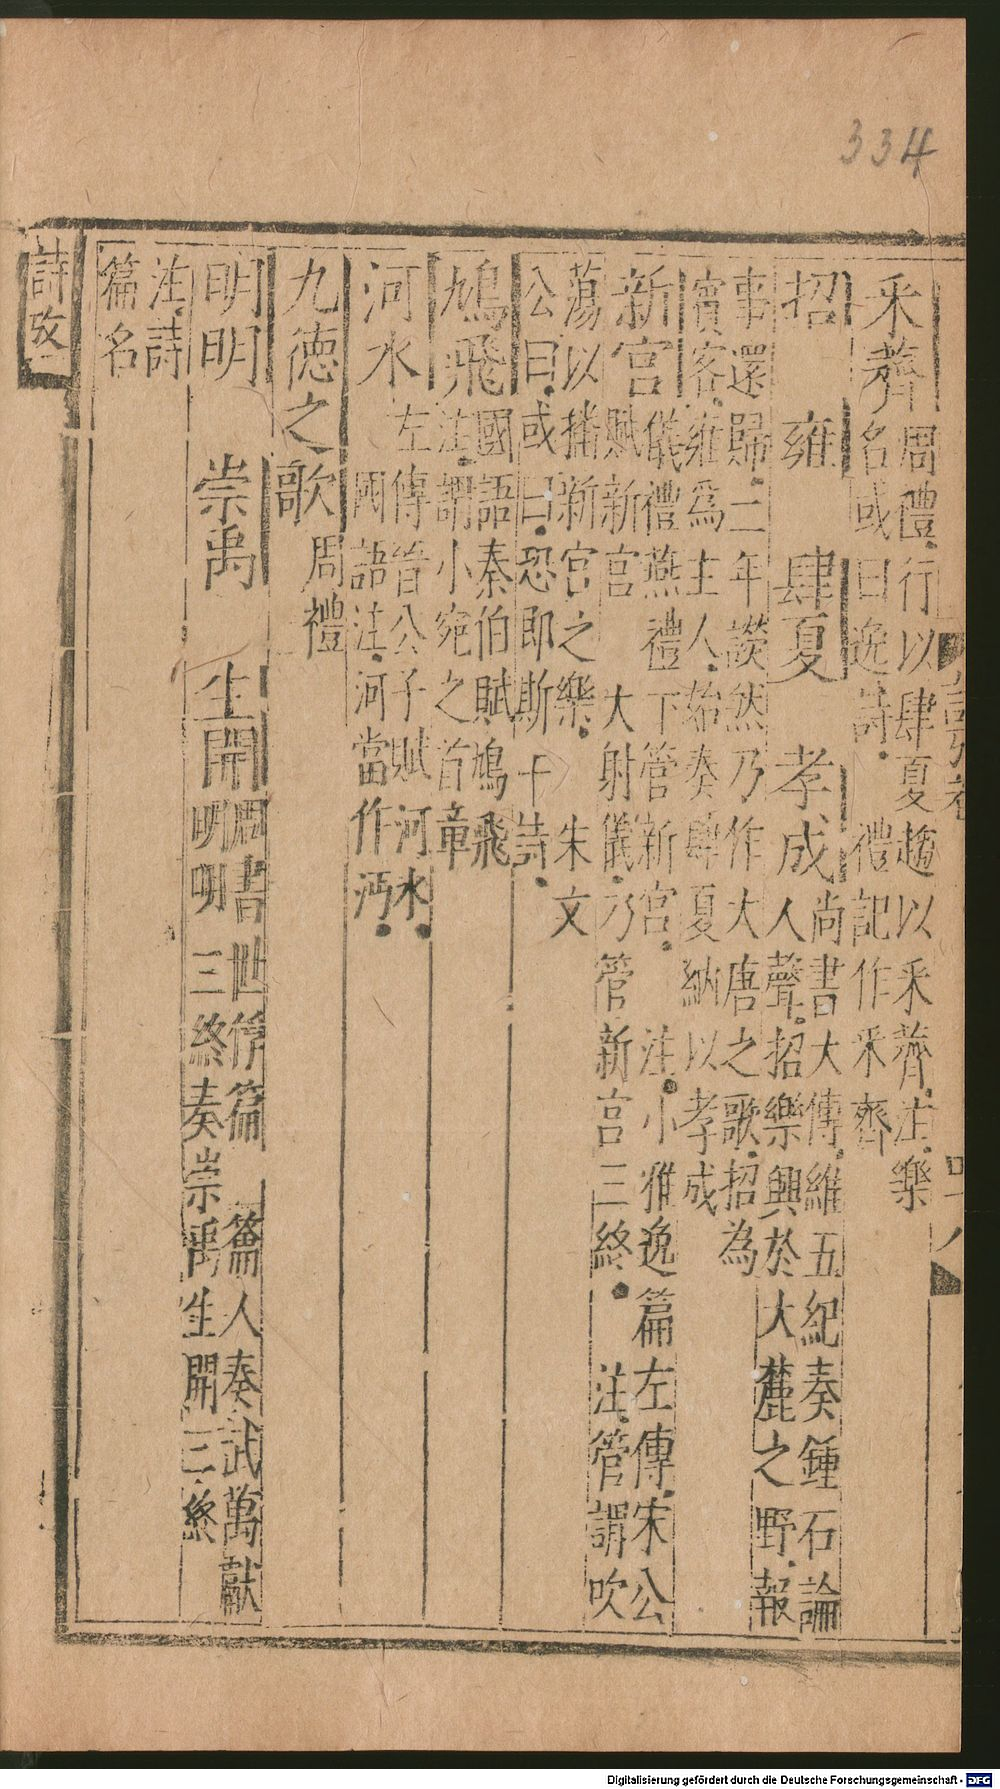 334
采薺周禮行以肆夏趨以采薺注樂
名或曰逸詩 禮記作采齊
招 雍 肆夏 孝成尚書大傳維五紀奏鍾石論
人聲招樂興於大麓之野報
事還歸二年談然乃作大唐之歌招為
賓客雍為主人始奏肆夏納以孝成
新宮儀禮燕禮下管新宮 注小雅逸篇左傳宋公
賦新宮 大射儀乃管新宮三終 注管謂吹
蕩以播新宮之樂 朱文
公曰或曰恐即斯干詩
鳩飛國語秦伯賦鳩飛
注謂小宛之首章
河水左傳晉公子賦河水
國語注河當作沔
九德之歌周禮
明明 崇禹 生開周書世俘篇 籥人奏武萬獻
明明三終奏崇禹生開三終
注詩
篇名
詩攷
Digitalisierung gefördert durch die Deutsche Forschungsgemeinschaft - DFG